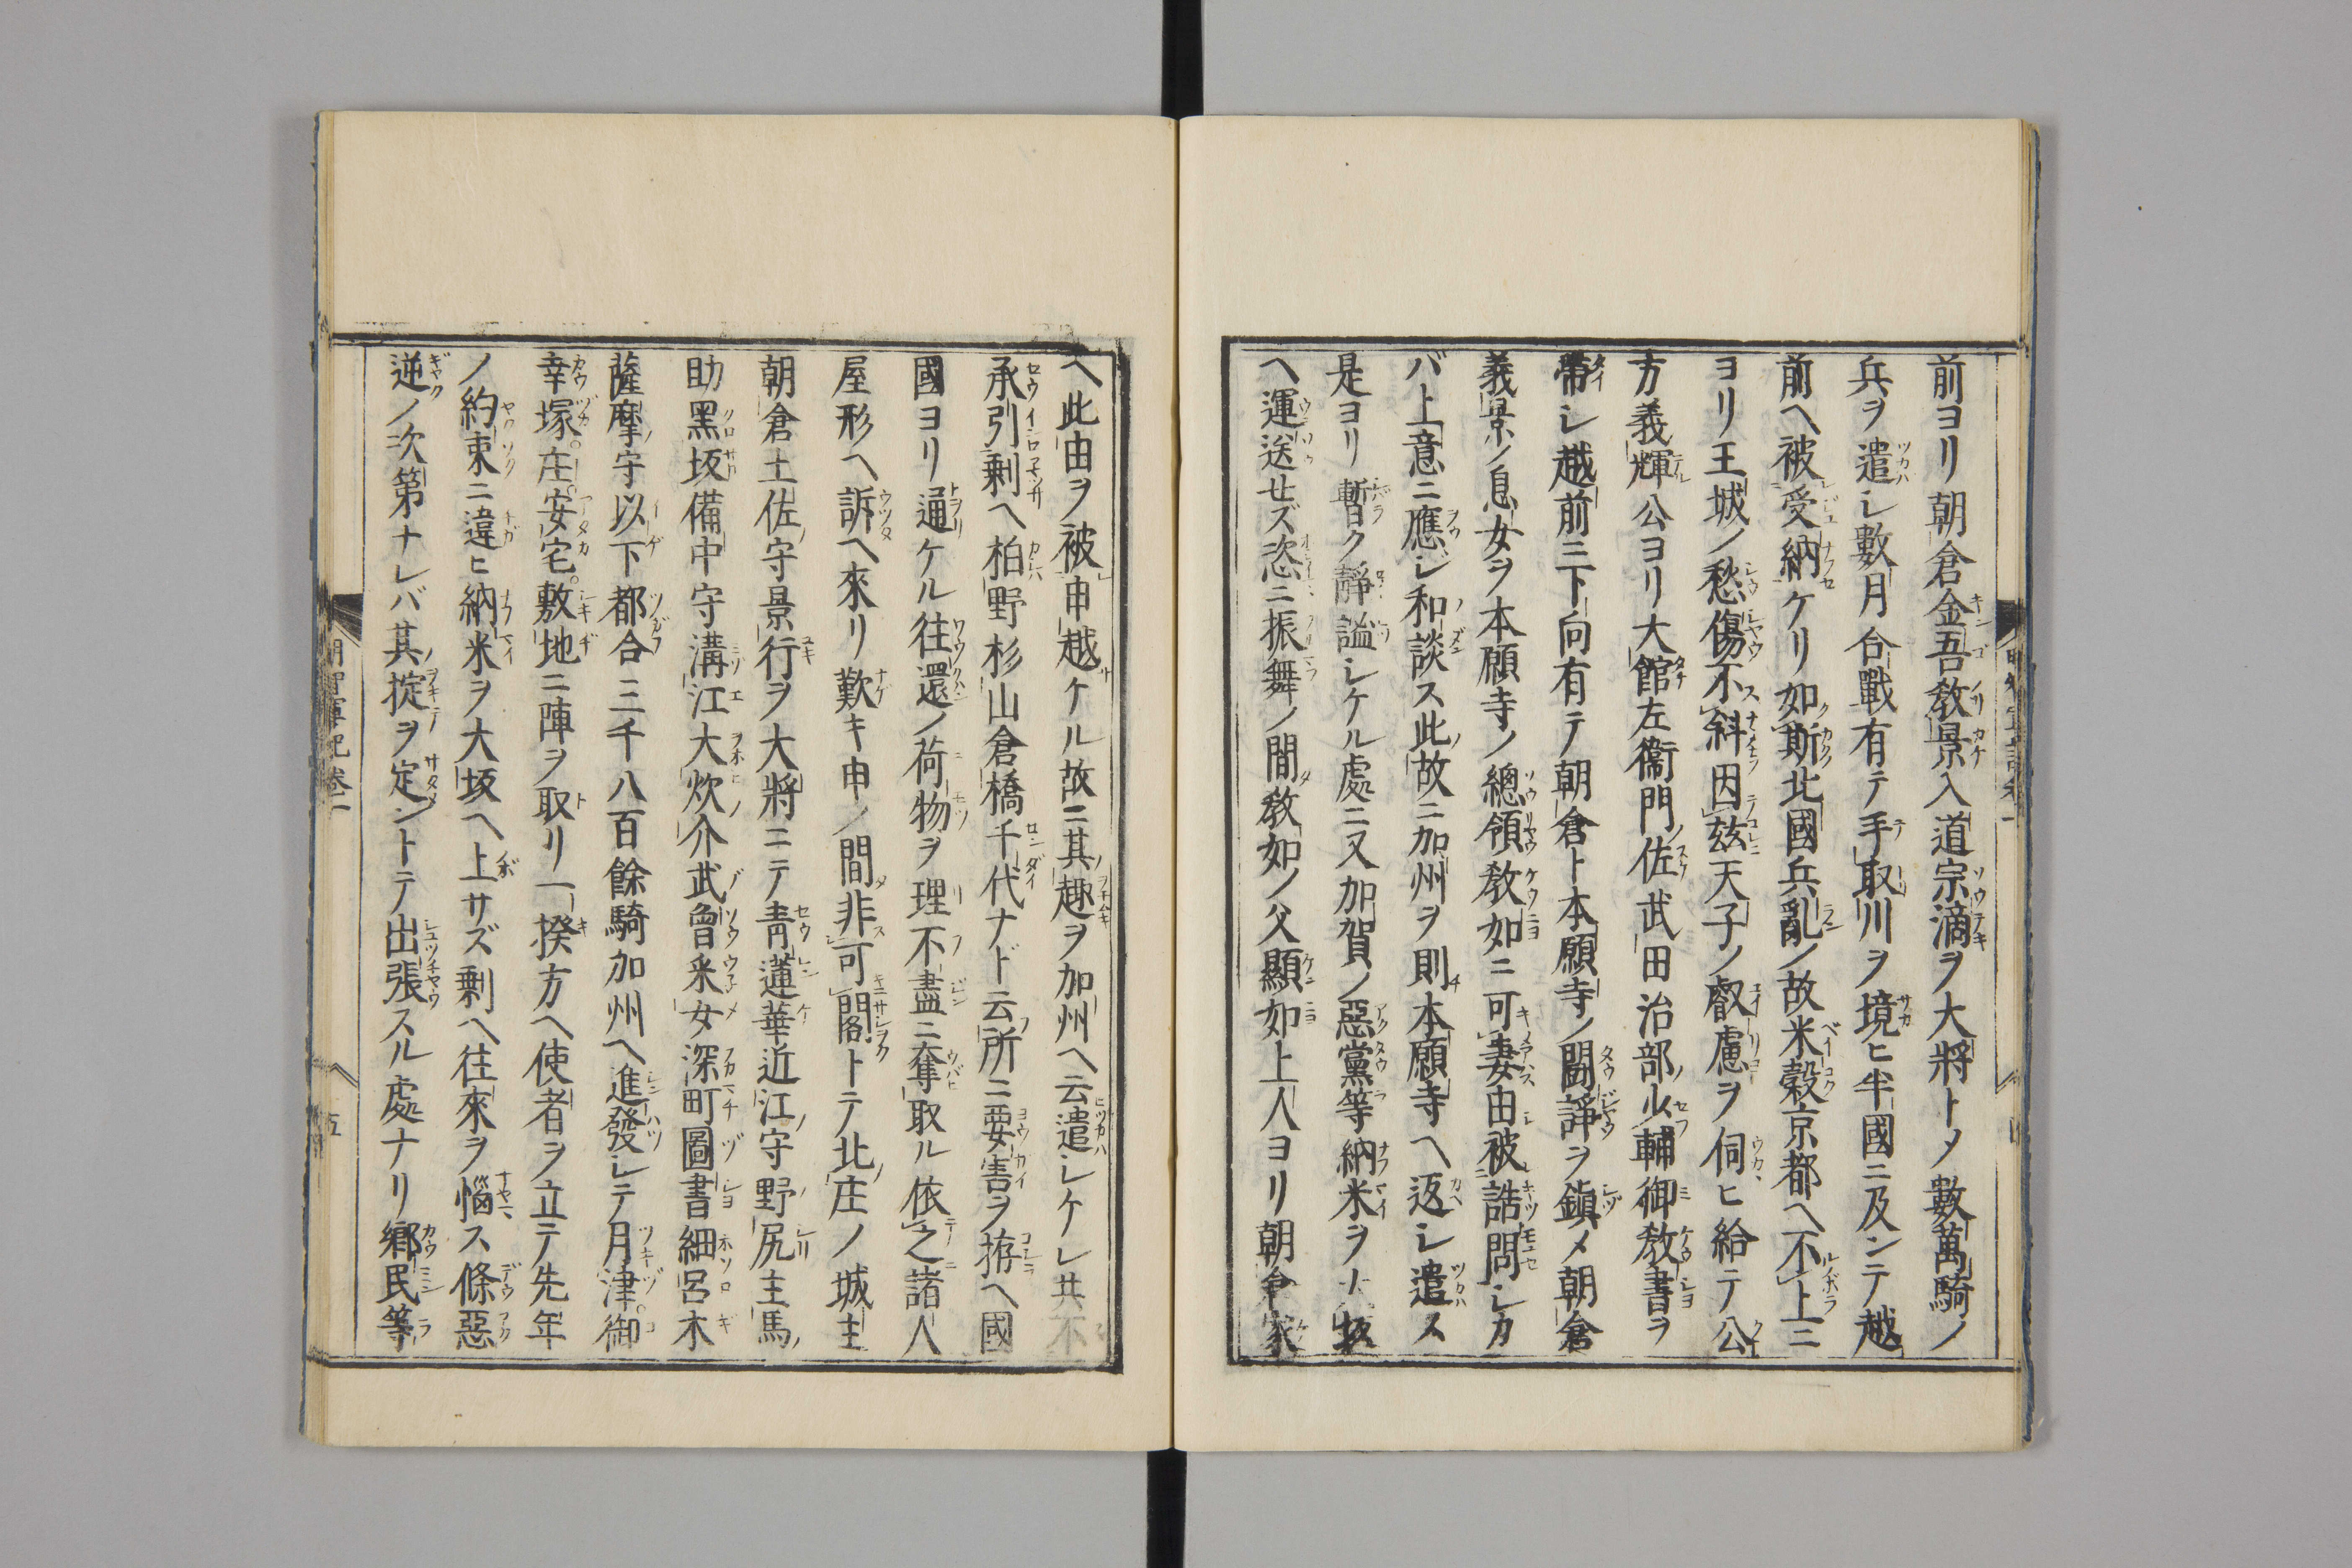 前ヨリ朝倉金吾教景入道宗滴ヲ大將トメ數萬騎ノ
兵ヲ遣シ數月合戰有テ手取川ヲ境ヒ半國ニ及ンテ越
前ヘ被受納ケリ如斯北國兵亂ノ故米穀京都ヘ不上ニ
ヨリ王城ノ愁傷不斜因茲天子ノ叡慮ヲ伺ヒ給テ公
方義輝公ヨリ大館左衞門佐武田治部少輔御教書ヲ
帶シ越前ニ下向有テ朝倉ト本願寺ノ鬪諍ヲ鎮メ朝倉
義景ノ息女ヲ本願寺ノ總領教如ニ可妻由被誥問シカ
バ上意ニ應シ和談ス此故ニ加州ヲ則本願寺ヘ返シ遣ス
是ヨリ暫ク靜謐シケル處ニ又加賀ノ惡黨等納米ヲ大坂
ヘ運送セズ恣ニ振舞ノ間教如ノ父顯如上人ヨリ朝倉家
ヘ此由ヲ被申越ケル故ニ其趣ヲ加州ヘ云遣シケレ共不
承引剰ヘ柏野杉山倉橋千代ナド云所ニ要害ヲ拵ヘ國
國ヨリ通ケル往還ノ荷物ヲ理不盡ニ奪取ル依之諸人
屋形ヘ訴ヘ來リ歎キ申ノ間非可閣トテ北庄ノ城主
朝倉土佐守景行ヲ大將ニテ青蓮華近江守野尻主馬
助黑坂備中守溝江大炊介武曾釆女深町圖書細呂木
薩摩守以下都合三千八百餘騎加州ヘ進發シテ月津御
幸塚庄安宅敷地ニ陣ヲ取リ一揆方ヘ使者ヲ立テ先年
ノ約束ニ違ヒ納米ヲ大坂ヘ上サズ剰ヘ往來ヲ惱ス條惡
逆ノ次第ナレバ其掟ヲ定ントテ出張スル處ナリ鄉民等
明智軍記卷一
五